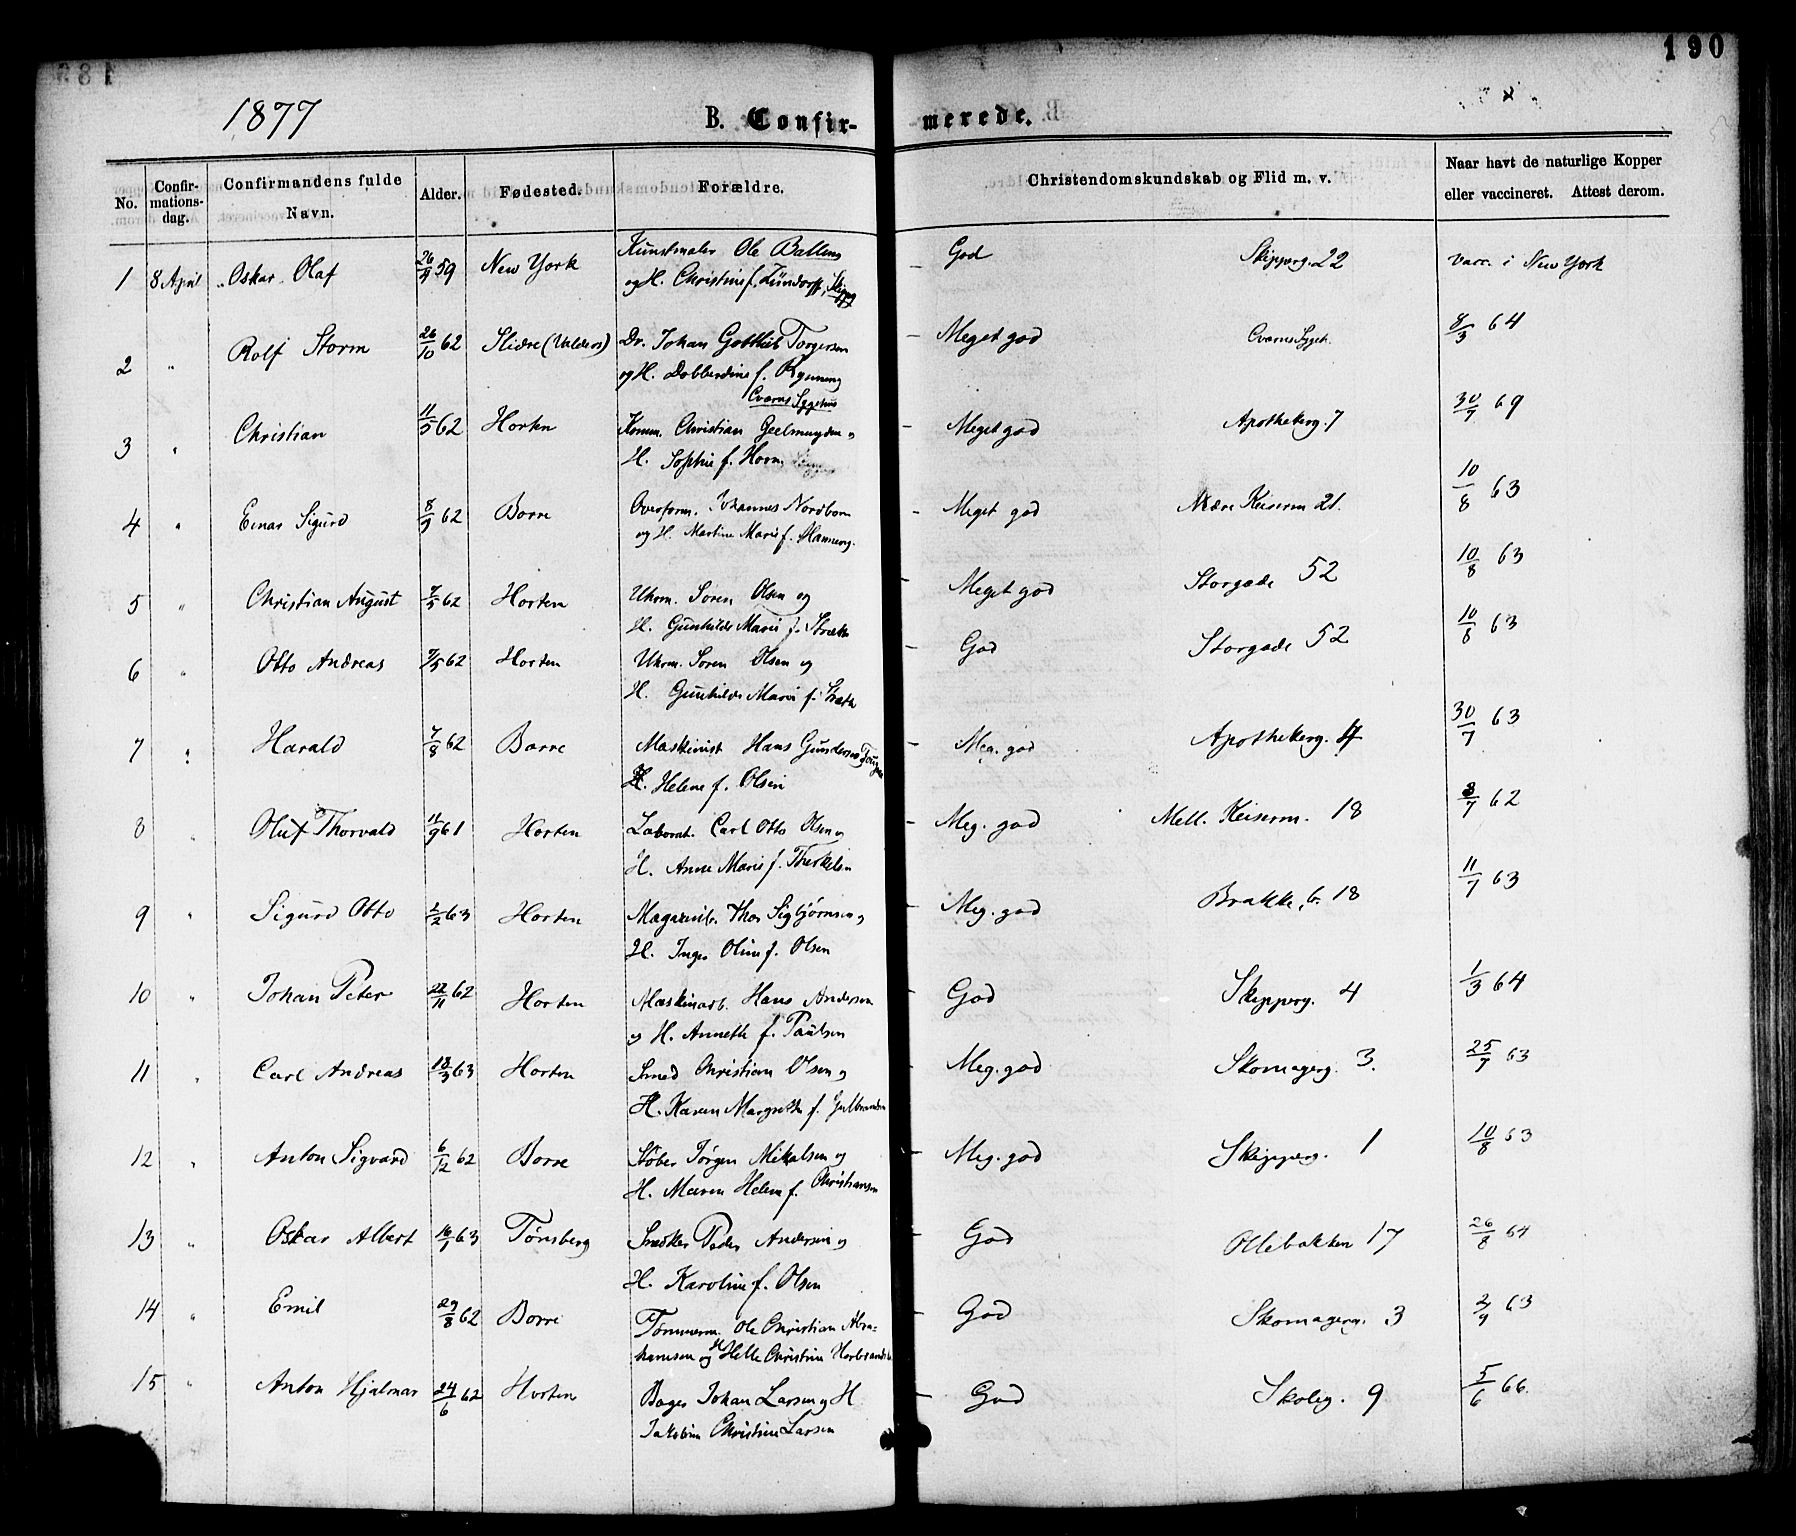 190
1877
B. Confir- merede.
No. Confir-mations-dag. Confirmandens fulde Navn. Alder. Fødested. Forældre. Christendomskundskab og Flid m. v. Naar havt de naturlige Kopper eller vaccineret. Attest derom.
1 8 April Oskar Olaf 26/9 59 New York Kunstmaler Ole Ballens God Skipperg. 22 vacc. i New York
og H. Christine f. Zündorff, Skipperg
2 " Rolf Storm 26/10 62 Slidre (Valders) Dr. Johan Gotthieb Torgersen Meget god Cværns Sygeh. 8/3 64
og H. Dobberdine f. Rynning
Cværns Sygehus
3 " Christian 11/5 62 Horten Komm. Christian Geelmuyden og Meget god Apothekerg. 7 30/7 69
H. Sophie f. Horn
4 " Einar Sigurd 8/9 62 Borre Overform. Johannes Nordbom Meget god Nedre Keiserm 21. 10/8 63
og H. Martine Marie f.
5 " Christian August 7/5 62 Horten Ukom. Søren Olsen og Meget god Storgade 52 10/8 63
H. Gunhilde Marie f.
6 " Otto Andreas 7/5 62 Horten Ukom. Søren Olsen og God Storgade 52 10/8 63
H. Gunhilde Marie f.
7 " Harald 7/8 62 Borre Maskinist Hans Gundersen Meg. god Apothekerg. 4 30/7 63
H. Helene f. Olsen
8 " Oluf Thorvald 11/9 61 Horten Laborat. Carl Otto Olsen og Meg. god Mell. Keiserm. 18 8/7 62
H. Anne Marie f. Therkelsen
9 " Sigurd Otto 1/2 63 Horten Magasinb. Thor Sigbjørnsen og Meg. god Brakke, b. 18 11/7 63
H. Inger Oline f. Olsen
10 " Johan Peter 22/11 62 Horten Maskinarb. Hans Andersen God Skipperg. 4 1/3 64
og H. Annette f. Paulsen
11 " Carl Andreas 18/3 63 Horten Smed Christian Olsen og Meg. god Skomagerg. 3. 25/7 63
H. Karen Margrethe f. Gulbrandsen
12 " Anton Sigvard 6/12 62 Borre Støber Jørgen Mikalsen og Meg. god Skipperg. 1 10/8 63
H. Maren Helene f. Christiansen
13 " Oskar Albert 16/1 63 Tønsberg Snedker Peder Andersen og God Ollebakken 17 26/8 64
H. Karoline f. Olsen
14 " Emil 29/8 62 Borre Tømmerm. Ole Christian Abra- God Skomagerg. 3 2/9 63
hamsen og H Helle Christine
15 " Anton Hjalmar 24/6 62 Horten Bager Johan Larsen og H God Skoleg. 9 5/6 66.
Jakobine Christine Larsen